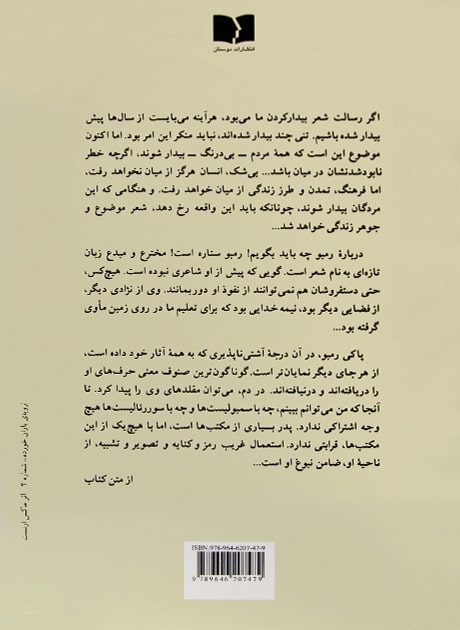 انتشارات بوستان
اگر رسالت شعر بیدارکردن ما می‌بود، هرآینه می‌بایست از سال‌ها پیش
بیدار شده باشیم. تنی چند بیدار شده‌اند، نباید منکر این امر بود. اما اکنون
موضوع این است که همهٔ مردم ــ بی‌درنگ ــ بیدار شوند، اگرچه خطر
نابودشدنشان در میان باشد... بی‌شک، انسان هرگز از میان نخواهد رفت،
اما فرهنگ، تمدن و طرز زندگی از میان خواهد رفت. و هنگامی که این
مردگان بیدار شوند، چونانکه باید این واقعه رخ دهد، شعر موضوع و
جوهر زندگی خواهد شد...
دربارهٔ رمبو چه باید بگویم! رمبو ستاره است! مخترع و مبدع زبان
تازه‌ای به نام شعر است. گویی که پیش از او شاعری نبوده است. هیچ‌کس،
حتی دستفروشان هم نمی‌توانند از نفوذ او دور بمانند. وی از نژادی دیگر،
از فضایی دیگر بود، نیمه خدایی بود که برای تعلیم ما در روی زمین مأوی
گرفته بود...
پاکی رمبو، در آن درجهٔ آشتی‌ناپذیری که به همهٔ آثار خود داده است،
از هر جای دیگر نمایان‌تر است. گوناگون‌ترین صنوف معنی حرف‌های او
را دریافته‌اند و درنیافته‌اند. در دم، می‌توان مقلدهای وی را پیدا کرد. تا
آنجا که من می‌توانم ببینم، چه با سمبولیست‌ها و چه با سوررئالیست‌ها هیچ
وجه اشتراکی ندارد. پدر بسیاری از مکتب‌ها است، اما با هیچ‌یک از این
مکتب‌ها، قرابتی ندارد. استعمال غریب رمز و کنایه و تصویر و تشبیه، از
ناحیهٔ او، ضامن نبوغ او است...
از متن کتاب
رویدی باران خورده، شماره ۲ اثر ماکس ارنست
ISBN:978-964-6207-47-9
9789646207479